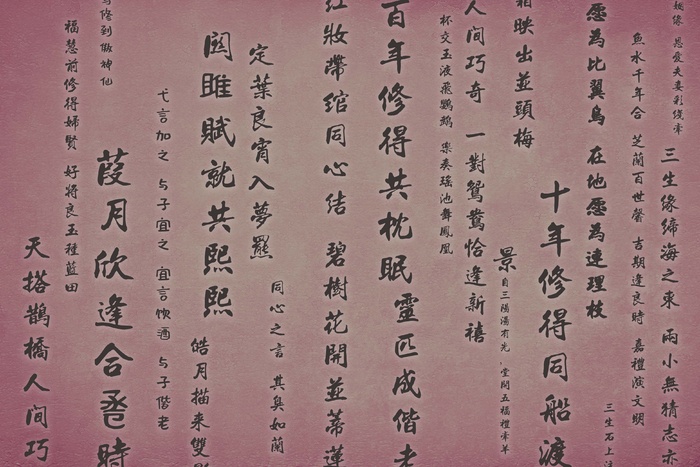 姻緣 恩愛夫妻彩綫牽
三生緣締海之東 兩小無猜志亦
魚水千年合 芝蘭百世馨 吉期逢良時 嘉禮演文明
三生石上
愿為比翼鳥 在地愿為連理枝
十年修得同船渡
相映出並頭梅
景自三陽湯有光 堂開五福禮牽羊
人间巧奇 一對鴛鴦恰逢新禧
杯交玉液飛鸚鵡 樂奏瑤池舞鳳凰
百年修得共枕眠 靈匹成偕老
紅妝帶綰同心結 碧樹花開並蒂蓮
定葉良宵入夢羆
同心之言 其臭如蘭
關雎賦就共熙熙
皓月描來雙影
弋言加之 与子宜之 宜言饮酒 与子偕老
葭月欣逢合巹時
修到做神仙
福慧前修得婦賢 好将良玉種藍田
天搭鵲橋人间巧